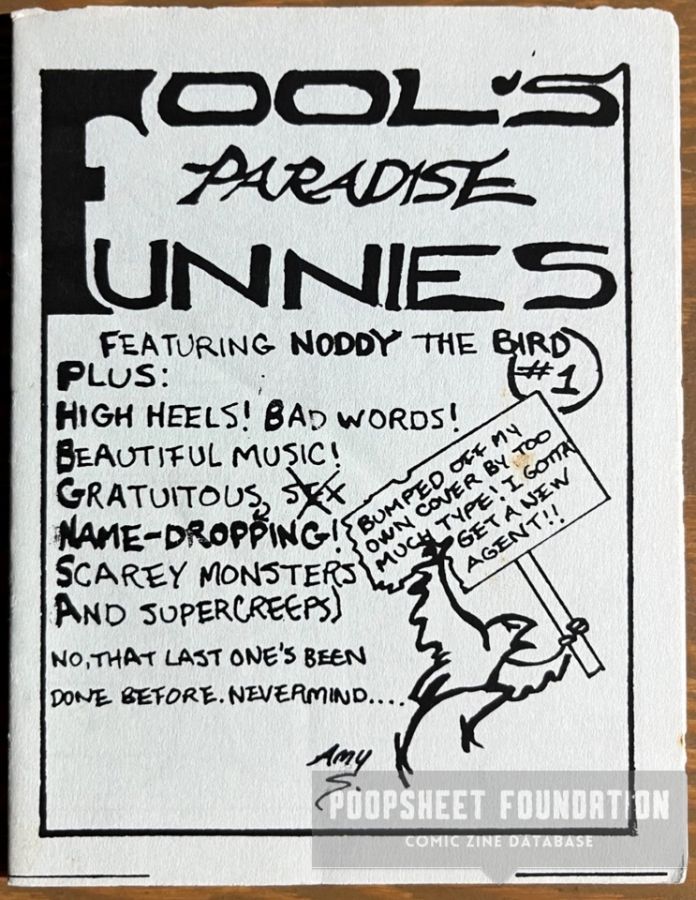 FOOL'S
PARADISE
FUNNIES
FEATURING NODDY THE BIRD
#1
PLUS:
HIGH HEELS! BAD WORDS!
BEAUTIFUL MUSIC!
GRATUITOUS SEX
NAME-DROPPING!
SCAREY MONSTERS
AND SUPERCREEPS)
NO, THAT LAST ONE'S BEEN
DONE BEFORE. NEVERMIND....
BUMPED OFF MY
OWN COVER BY TOO
MUCH TYPE!! I GOTTA
GET A NEW
AGENT!!
AMY
S.
POOPSHEET FOUNDATION
COMIC ZINE DATABASE